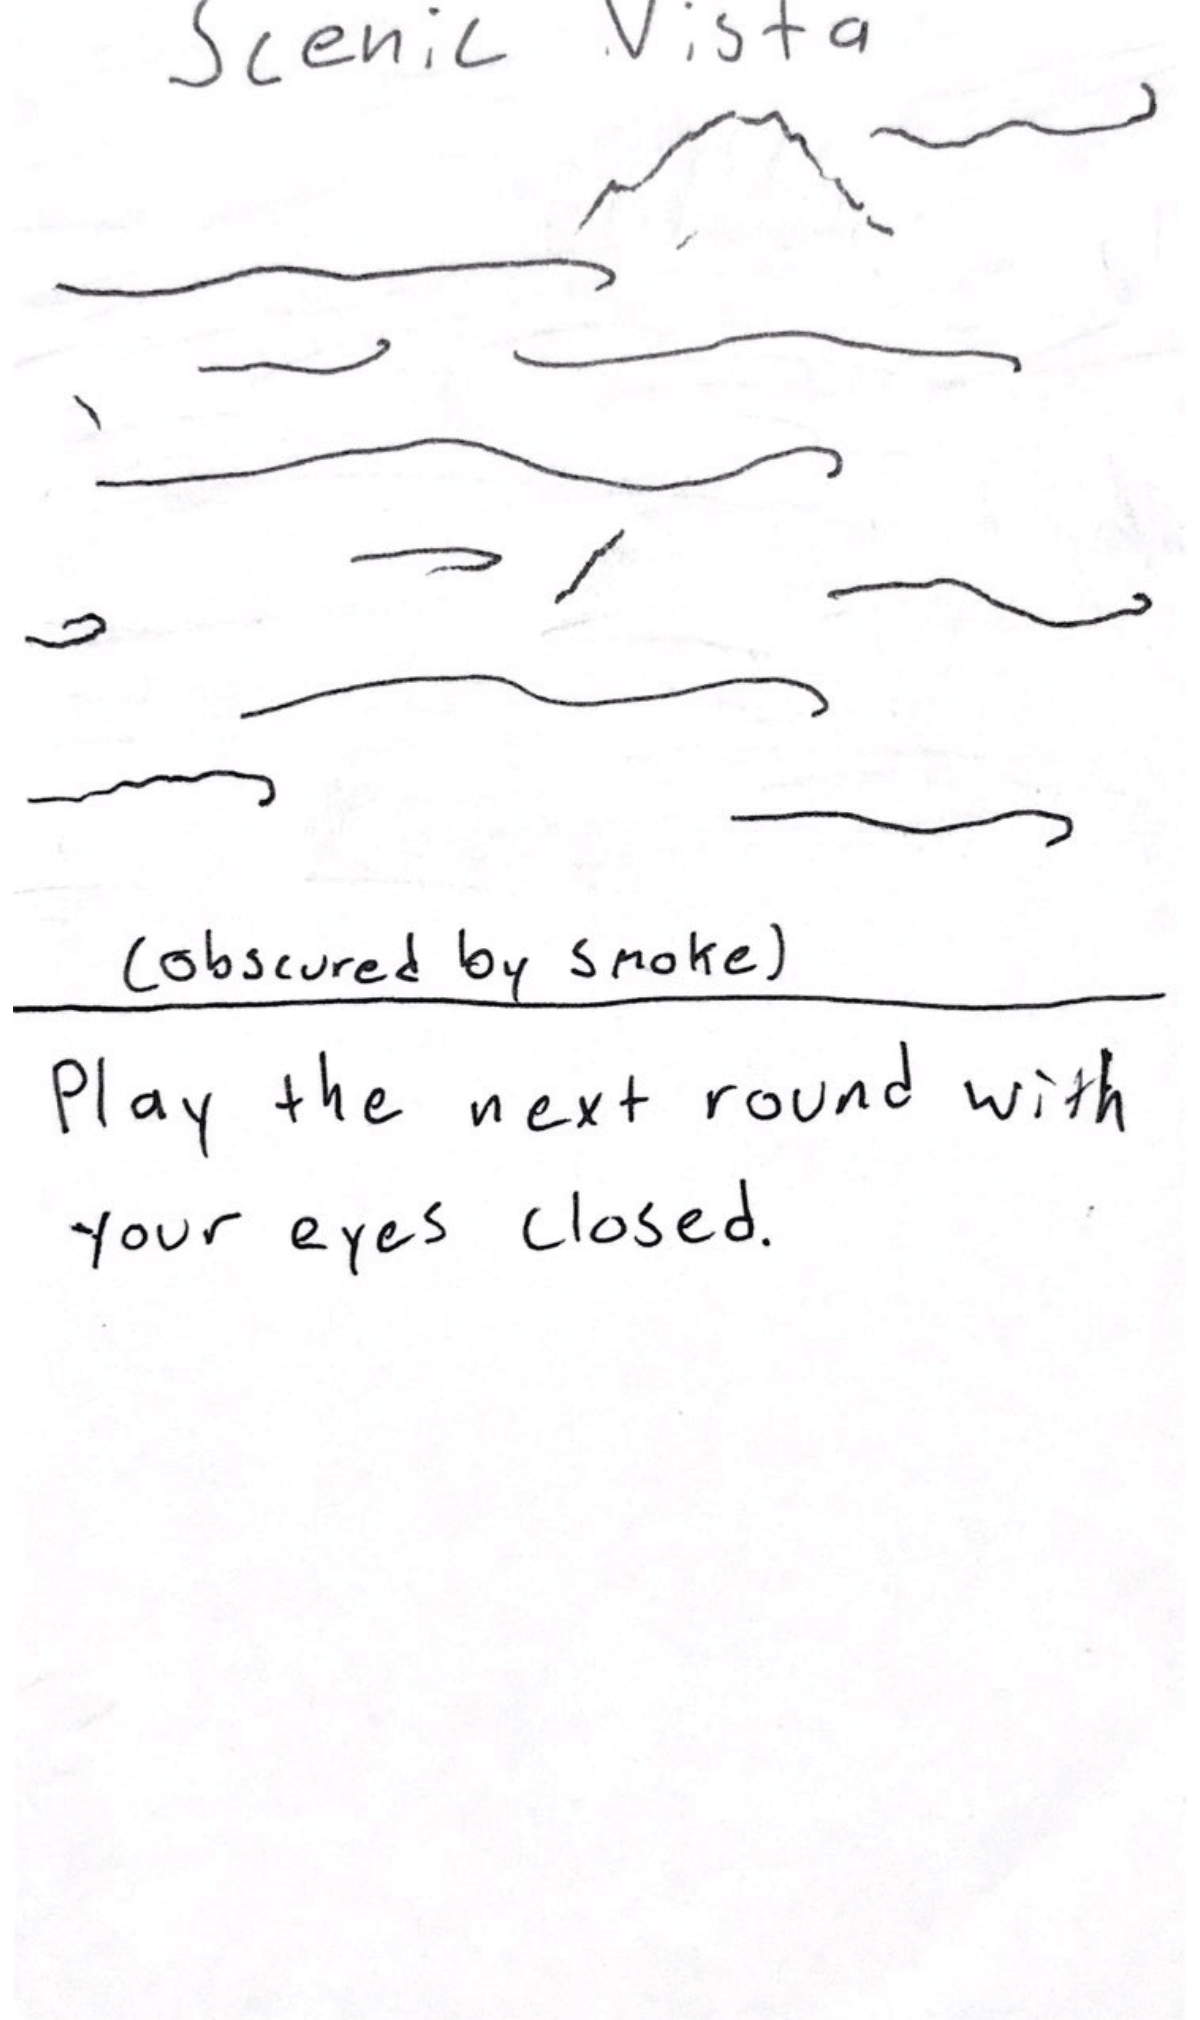 Scenic Vista
(obscured by smoke)
Play the next round with
your eyes closed.